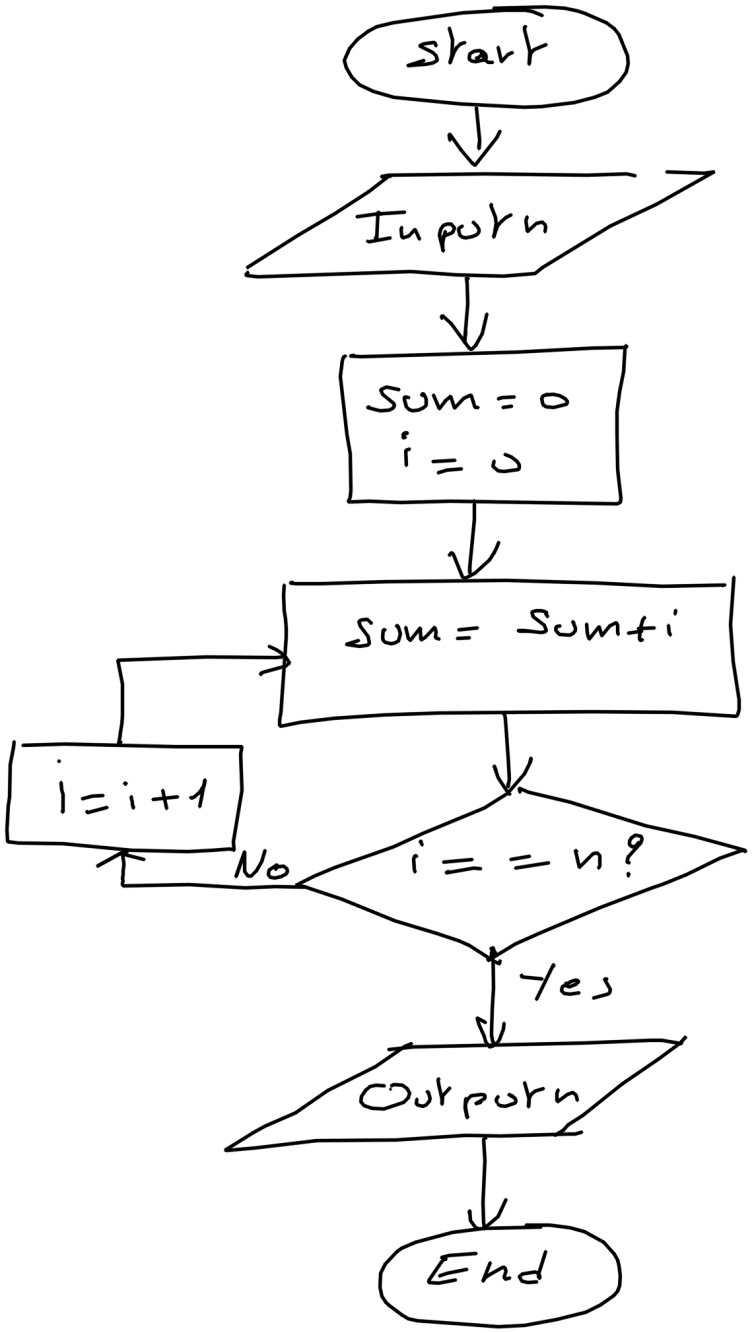 Start
Input n
Sum = 0
i = 0
Sum = Sum + i
i = i + 1
No
i = = n?
Yes
Output n
End